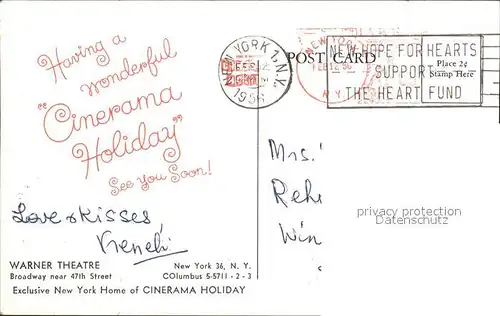 Having a
wonderful
"Cinerama
Holiday"
See You Soon!
Love & Kisses,
WARNER THEATRE
Broadway near 47th Street
New York 36, N. Y.
COlumbus 5-5711 - 2 - 3
Exclusive New York Home of CINERAMA HOLIDAY
NEW YORK 1, N.Y.
1956
POST CARD
Place 2¢
Stamp Here
NEW YORK
FEB 12 56
N.Y.
NEW HOPE FOR HEARTS
SUPPORT
THE HEART FUND
Mrs.
Reh
Win
privacy protection
oldthing.de